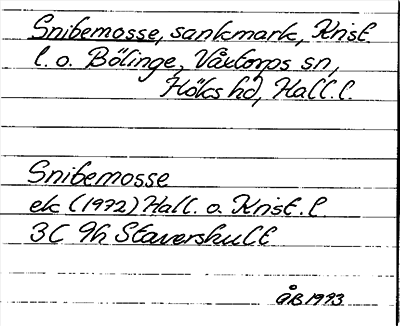 Snibemosse, sankmark, Krist.
l. o. Bölinge, Våxtorps sn,
Höks hd, Hall. l.
Snibemosse
ek (1972) Hall. o. Krist. l.
3C 9h Stavershult
ÅB 1993